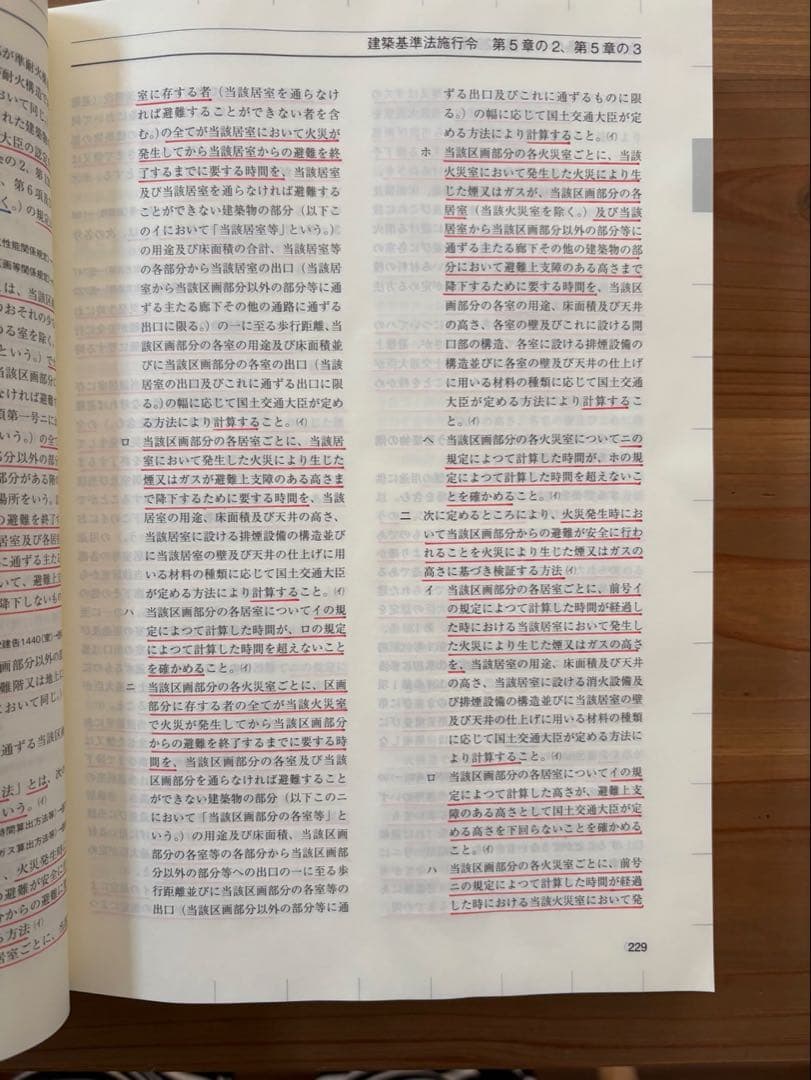 建築基準法施行令　第5章の2、第5章の3
室に存する者（当該居室を通らなけ
れば避難することができない者を含
む。）の全てが当該居室において火災が
発生してから当該居室からの避難を終
了するまでに要する時間を、当該居室
及び当該居室を通らなければ避難する
ことができない建築物の部分（以下こ
のイにおいて「当該居室等」という。）
の用途及び床面積の合計、当該居室等
の各部分から当該居室の出口（当該居
室から当該区画部分以外の部分等に通
ずる主たる廊下その他の通路に通ずる
出口に限る。）の一に至る歩行距離、当
該区画部分の各室の用途及び床面積並
びに当該区画部分の各室の出口（当該
居室の出口及びこれに通ずる出口に限
る。）の幅に応じて国土交通大臣が定め
る方法により計算すること。(イ)
ロ　当該区画部分の各居室ごとに、当該居
室において発生した火災により生じた
煙又はガスが避難上支障のある高さま
で降下するために要する時間を、当該
居室の用途、床面積及び天井の高さ、
当該居室に設ける排煙設備の構造並び
に当該居室の壁及び天井の仕上げに用
いる材料の種類に応じて国土交通大臣
が定める方法により計算すること。(イ)
ハ　当該区画部分の各居室についてイの規
定によつて計算した時間が、ロの規定
によつて計算した時間を超えないこと
を確かめること。(イ)
ニ　当該区画部分の各火災室ごとに、区画
部分に存する者の全てが当該火災室
で火災が発生してから当該区画部分
からの避難を終了するまでに要する時
間を、当該区画部分の各室及び当該
区画部分を通らなければ避難すること
ができない建築物の部分（以下このニ
において「当該区画部分の各室等」と
いう。）の用途及び床面積、当該区画部
分の各室等の各部分から当該区画部
分以外の部分等への出口の一に至る歩
行距離並びに当該区画部分の各室等の
出口（当該区画部分以外の部分等に通
ずる出口及びこれに通ずるものに限
る。）の幅に応じて国土交通大臣が定
める方法により計算すること。(イ)
ホ　当該区画部分の各火災室ごとに、当該
火災室において発生した火災により生
じた煙又はガスが、当該区画部分の各
居室（当該火災室を除く。）及び当該
居室から当該区画部分以外の部分等に
通ずる主たる廊下その他の建築物の部
分において避難上支障のある高さまで
降下するために要する時間を、当該区
画部分の各室の用途、床面積及び天井
の高さ、各室の壁及びこれに設ける開
口部の構造、各室に設ける排煙設備の
構造並びに各室の壁及び天井の仕上げ
に用いる材料の種類に応じて国土交通
大臣が定める方法により計算するこ
と。(イ)
ヘ　当該区画部分の各火災室についてニの
規定によつて計算した時間が、ホの規
定によつて計算した時間を超えないこ
とを確かめること。(イ)
二　次に定めるところにより、火災発生時にお
いて当該区画部分からの避難が安全に行わ
れることを火災により生じた煙又はガスの
高さに基づき検証する方法(イ)
イ　当該区画部分の各居室ごとに、前号イ
の規定によつて計算した時間が経過し
た時における当該居室において発生し
た火災により生じた煙又はガスの高さ
を、当該居室の用途、床面積及び天井
の高さ、当該居室に設ける消火設備及
び排煙設備の構造並びに当該居室の壁
及び天井の仕上げに用いる材料の種類
に応じて国土交通大臣が定める方法に
より計算すること。(イ)
ロ　当該区画部分の各居室についてイの規
定によつて計算した高さが、避難上支
障のある高さとして国土交通大臣が定
める高さを下回らないことを確かめる
こと。(イ)
ハ　当該区画部分の各火災室ごとに、前号
ニの規定によつて計算した時間が経過
した時における当該火災室において発
229